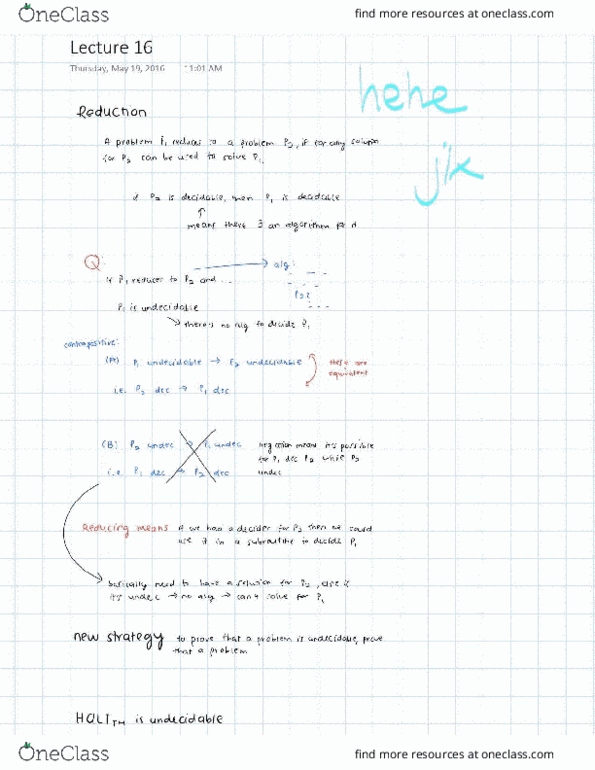 OneClass
find more resources at oneclass.com
Lecture 16
Thursday, May 19, 2016 11:01 AM
hehe
j/k
Reduction
A problem P₁ reduces to a problem P₂, if for any solution
for P₂ can be used to solve P₁.
if P₂ is decidable, then P₁ is decidable
means there ∃ an algorithm for it
Q:
if P₁ reduces to P₂ and ...
alg:
P₂:
P₁ is undecidable
→ there's no alg to decide P₁
contrapositive:
(A) P₁ undecidable → P₂ undecidable
i.e. P₂ dec → P₁ dec
they are
equivalent
(B) P₂ undec → P₁ undec
i.e. P₁ dec → P₂ dec
negation means it's possible
for P₁ dec P₂ while P₂
undec
Reducing means if we had a decider for P₂ then we could
use it in a subroutine to decide P₁
basically need to have a solution for P₂, else if
it's undec → no alg → can't solve for P₁
new strategy to prove that a problem is undecidable, prove
that a problem
HALT_TM is undecidable
OneClass
find more resources at oneclass.com